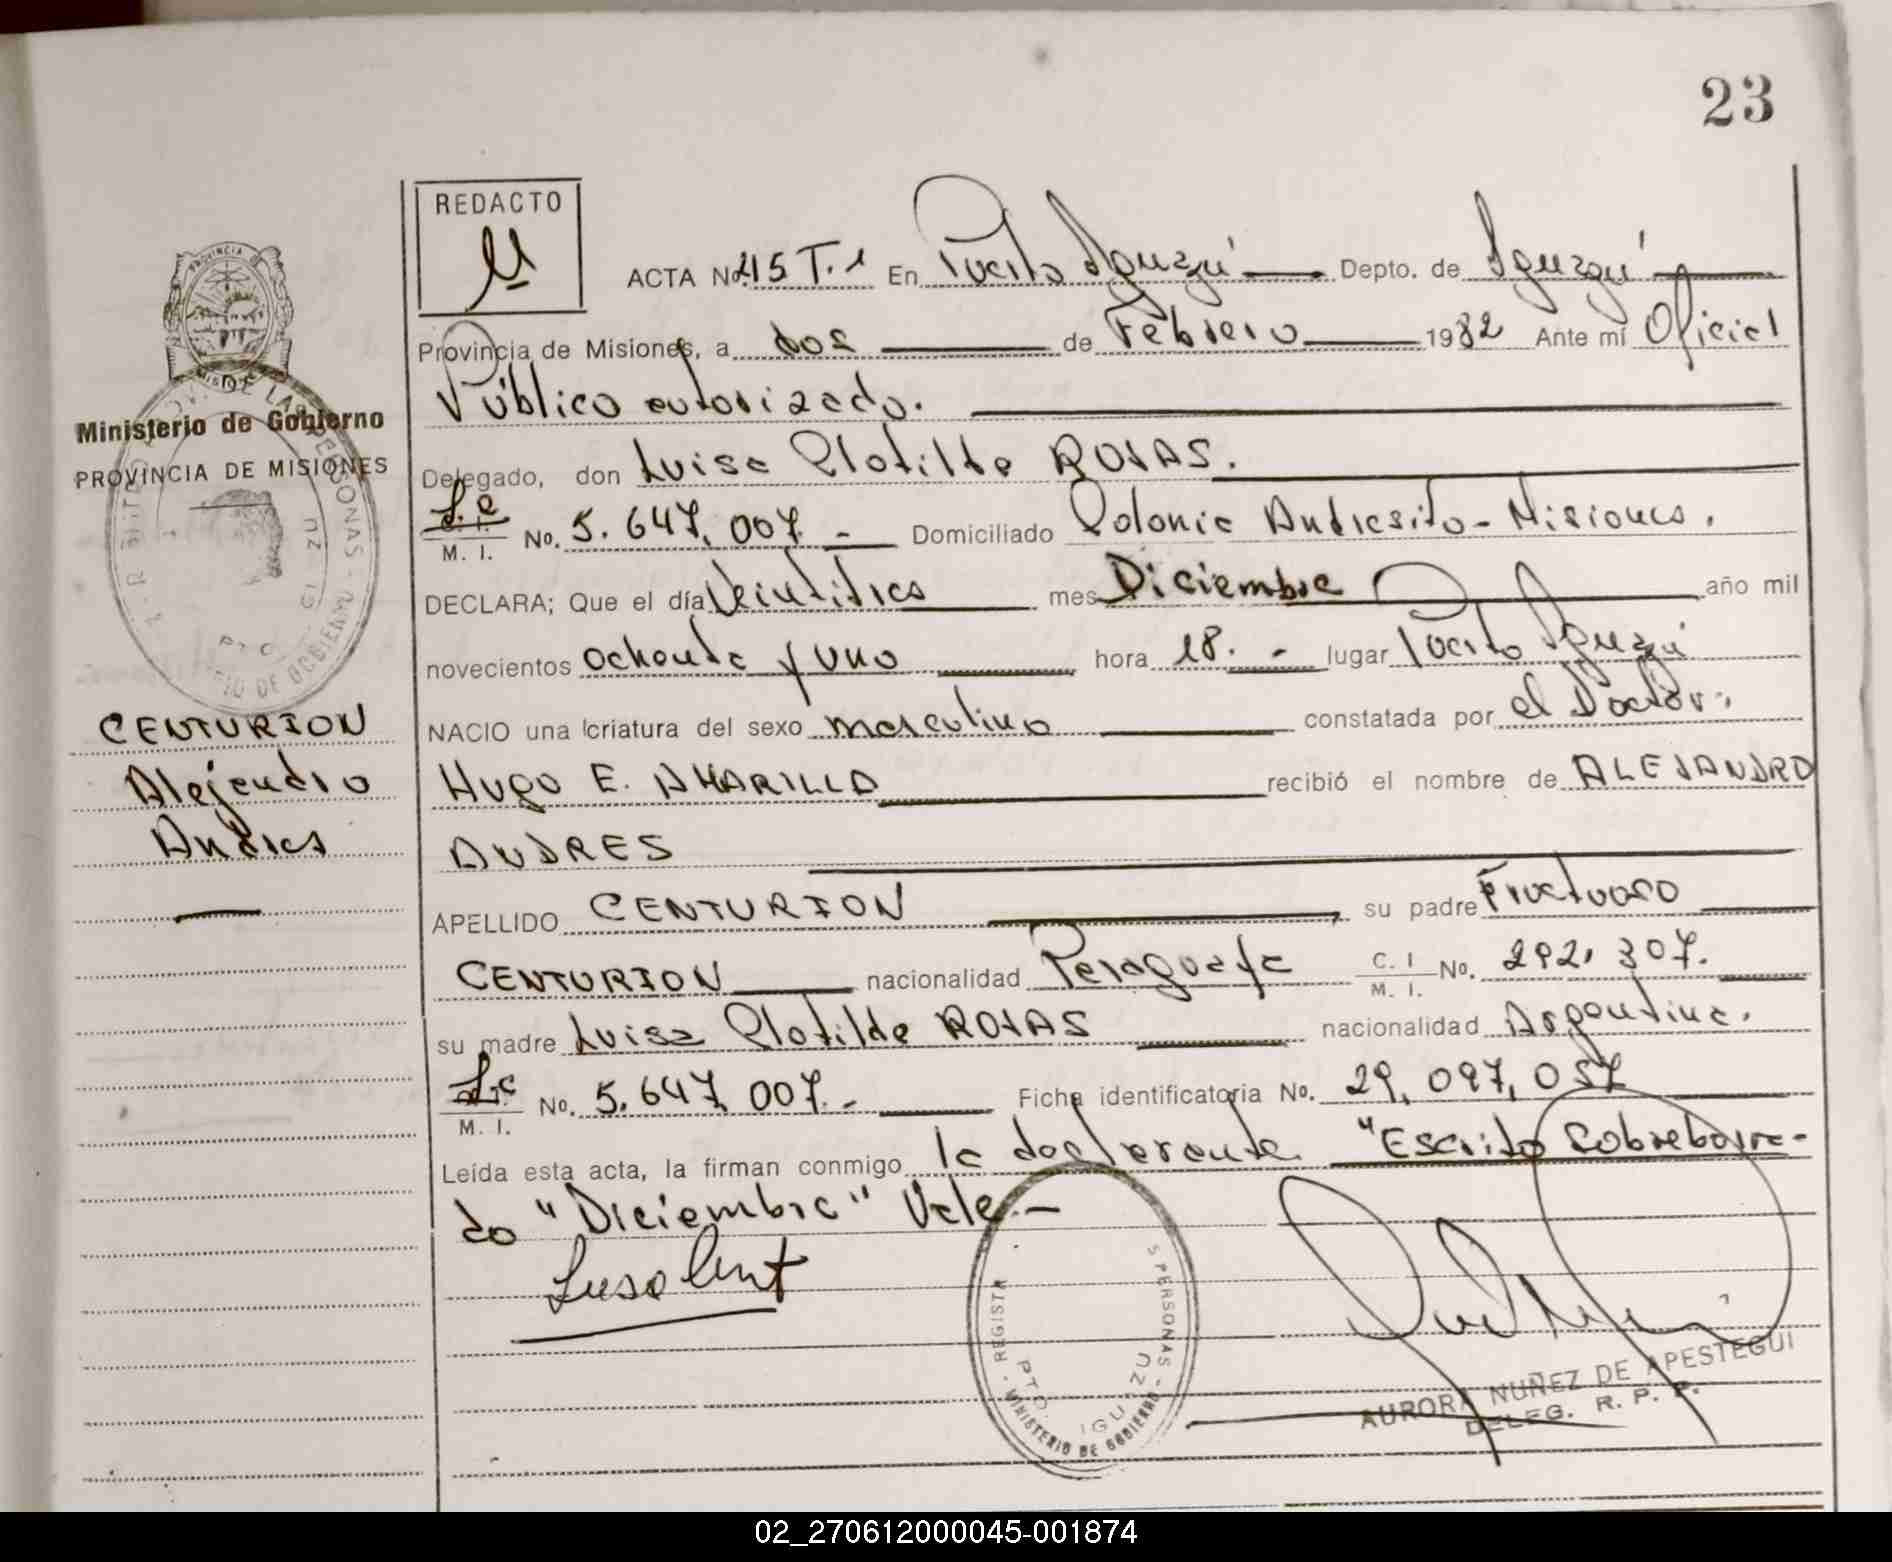 23
REDACTO
ACTA No. 215 T.1 En Puerto Iguazú Depto. de Iguazú
Provincia de Misiones, a dos de Febrero 1982 Ante mí Oficial
Público autorizado.
Ministerio de Gobierno
PROVINCIA DE MISIONES
Delegado, don Luisa Clotilde ROJAS.
L.C M. I. No. 5.647.007.- Domiciliado Colonia Andresito - Misiones.
DECLARA; Que el día Veintitres mes Diciembre año mil
novecientos ochenta y uno hora 18.- lugar Puerto Iguazú
CENTURION
Alejandro
Andres
NACIO una criatura del sexo masculino constatada por el Doctor:
Hugo E. AMARILLA recibió el nombre de ALEJANDRO
ANDRES
APELLIDO CENTURION su padre Fructuoso
CENTURION nacionalidad Paraguaya C. I M. I. No. 292.307.
su madre Luisa Clotilde ROJAS nacionalidad Argentina.
L.C M. I. No. 5.647.007.- Ficha identificatoria No. 29.097.057
Leída esta acta, la firman conmigo la declarante. "Escrito Sobreborra-
do "Diciembre" Vale.-
REGISTR PERSONAS - MINISTERIO DE GOBIERNO
PTO. IGUAZU
AURORA NUÑEZ DE APESTEGUI
DELEG. R. P. P.
02_270612000045-001874